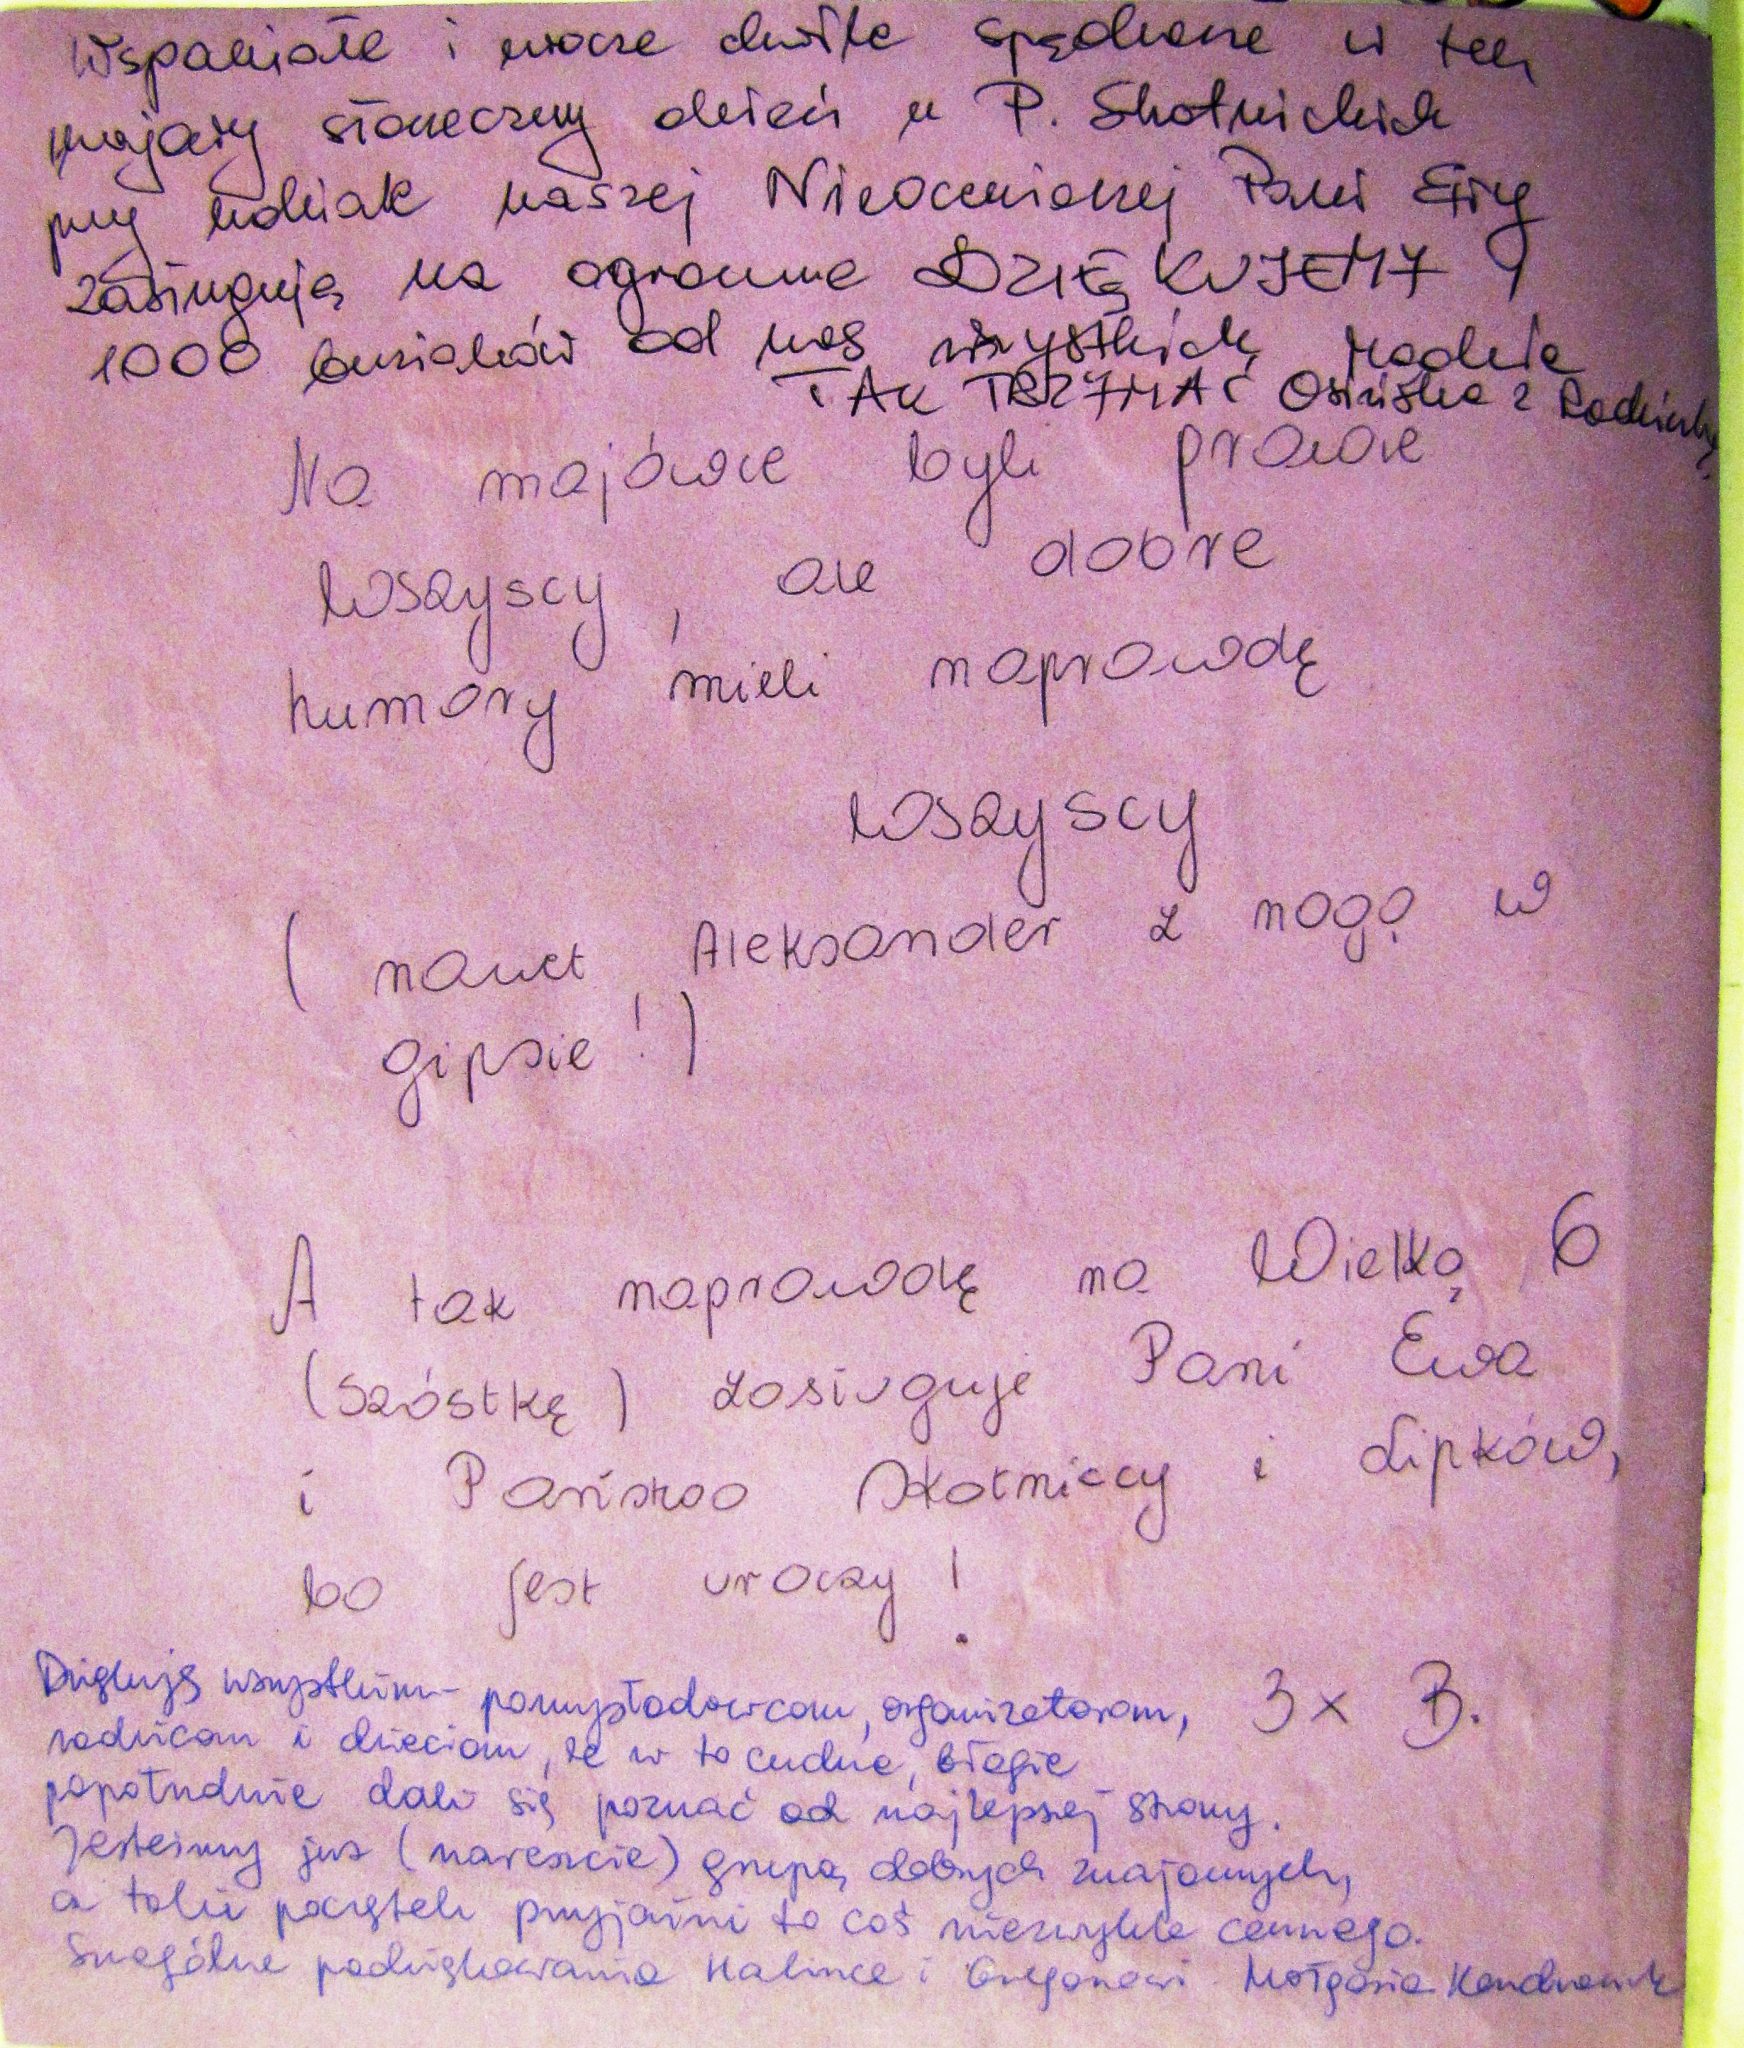 Wspaniałe i urocze chwile spędzone w ten
majowy słoneczny dzień u P. Skotnickich
przy udziale naszej Nieocenionej Pani Ewy
zasługują na ogromne DZIĘKUJEMY !
1000 buziaków od nas wszystkich
TAK TRZYMAĆ z Rodzinką
Na majówce byli prawie
wszyscy, ale dobre
humory mieli naprawdę
wszyscy
( nawet Aleksander z nogą w
gipsie ! )
A tak naprawdę na Wielką 6
(szóstkę) zasługuje Pani Ewa
i Państwo Skotniccy i Lipków,
bo jest uroczy !
3 x B.
Dziękuję wszystkim - pomysłodawcom, organizatorom,
rodzicom i dzieciom, że w to cudne, błogie
popołudnie dali się poznać od najlepszej strony.
Jesteśmy już (nareszcie) grupą dobrych znajomych,
a taki początek przyjaźni to coś niezwykle cennego.
Szczególne podziękowania Halince i Grzegorzowi. Małgosia